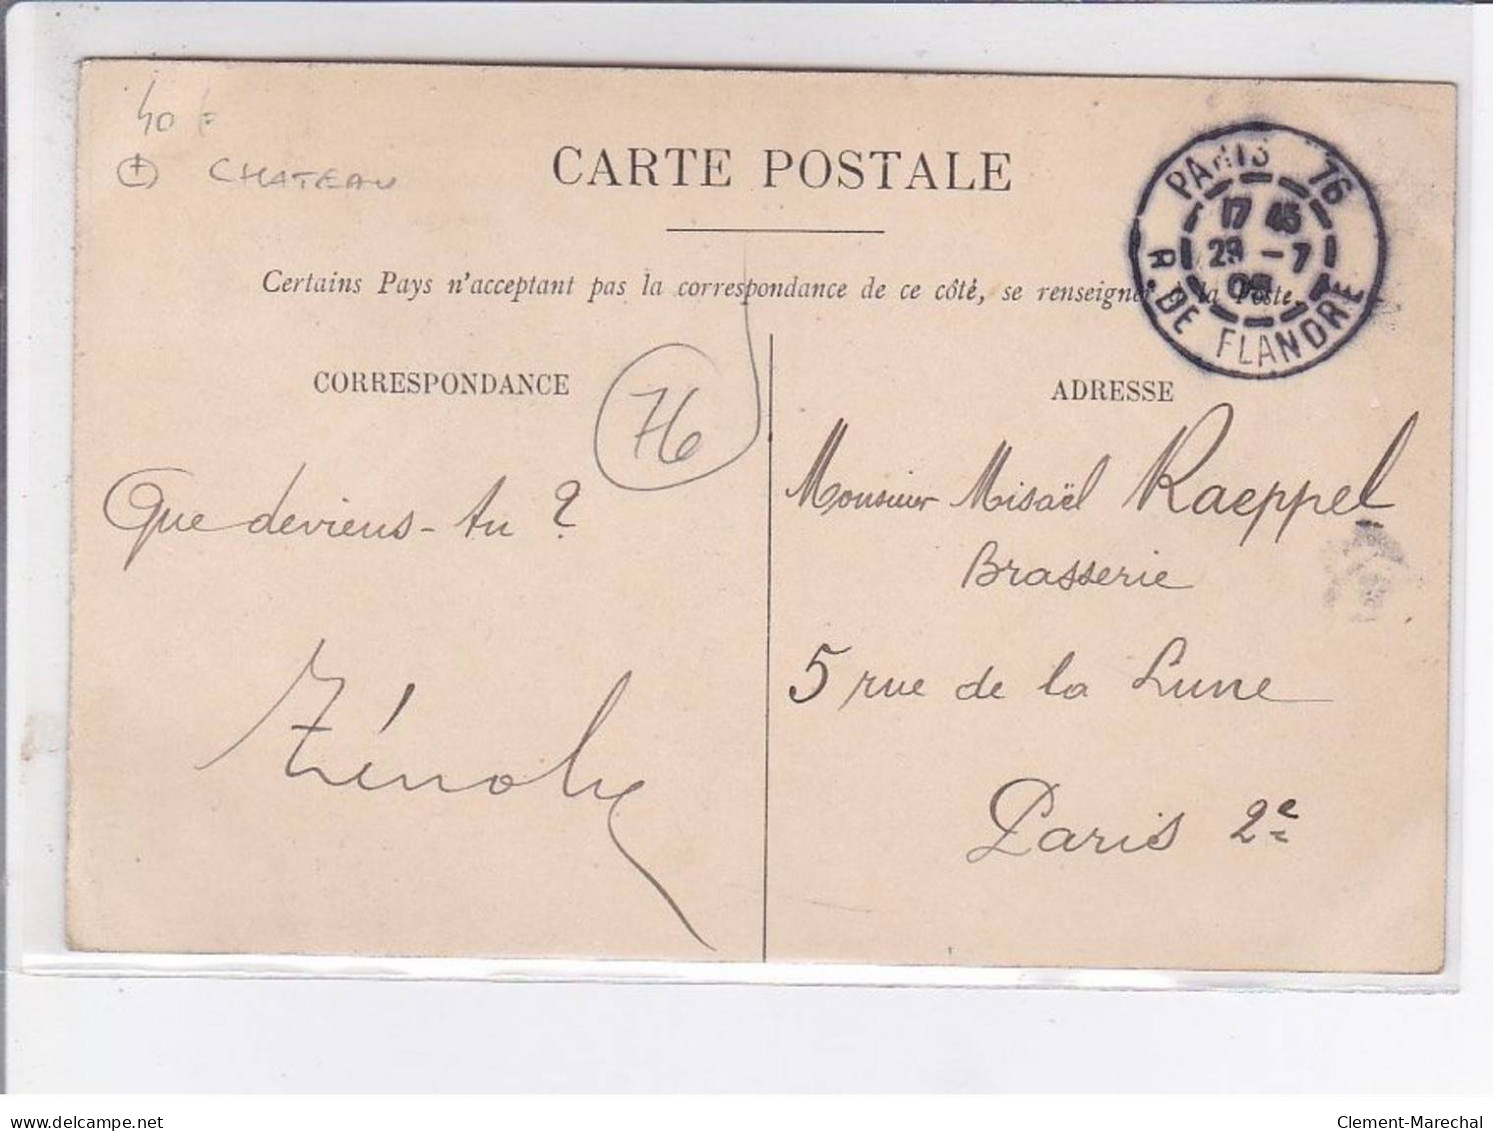 CHATEAU
CARTE POSTALE
PARIS 76
17 45
29 - 7
R. DE FLANDRE
Certains Pays n'acceptant pas la correspondance de ce côté, se renseigner à la Poste.
CORRESPONDANCE
76
ADRESSE
Que deviens-tu ?
Monsieur Misaël Kaeppel
Brasserie
5 rue de la Lune
Paris 2e
delcampe.net
Clement-Marechal